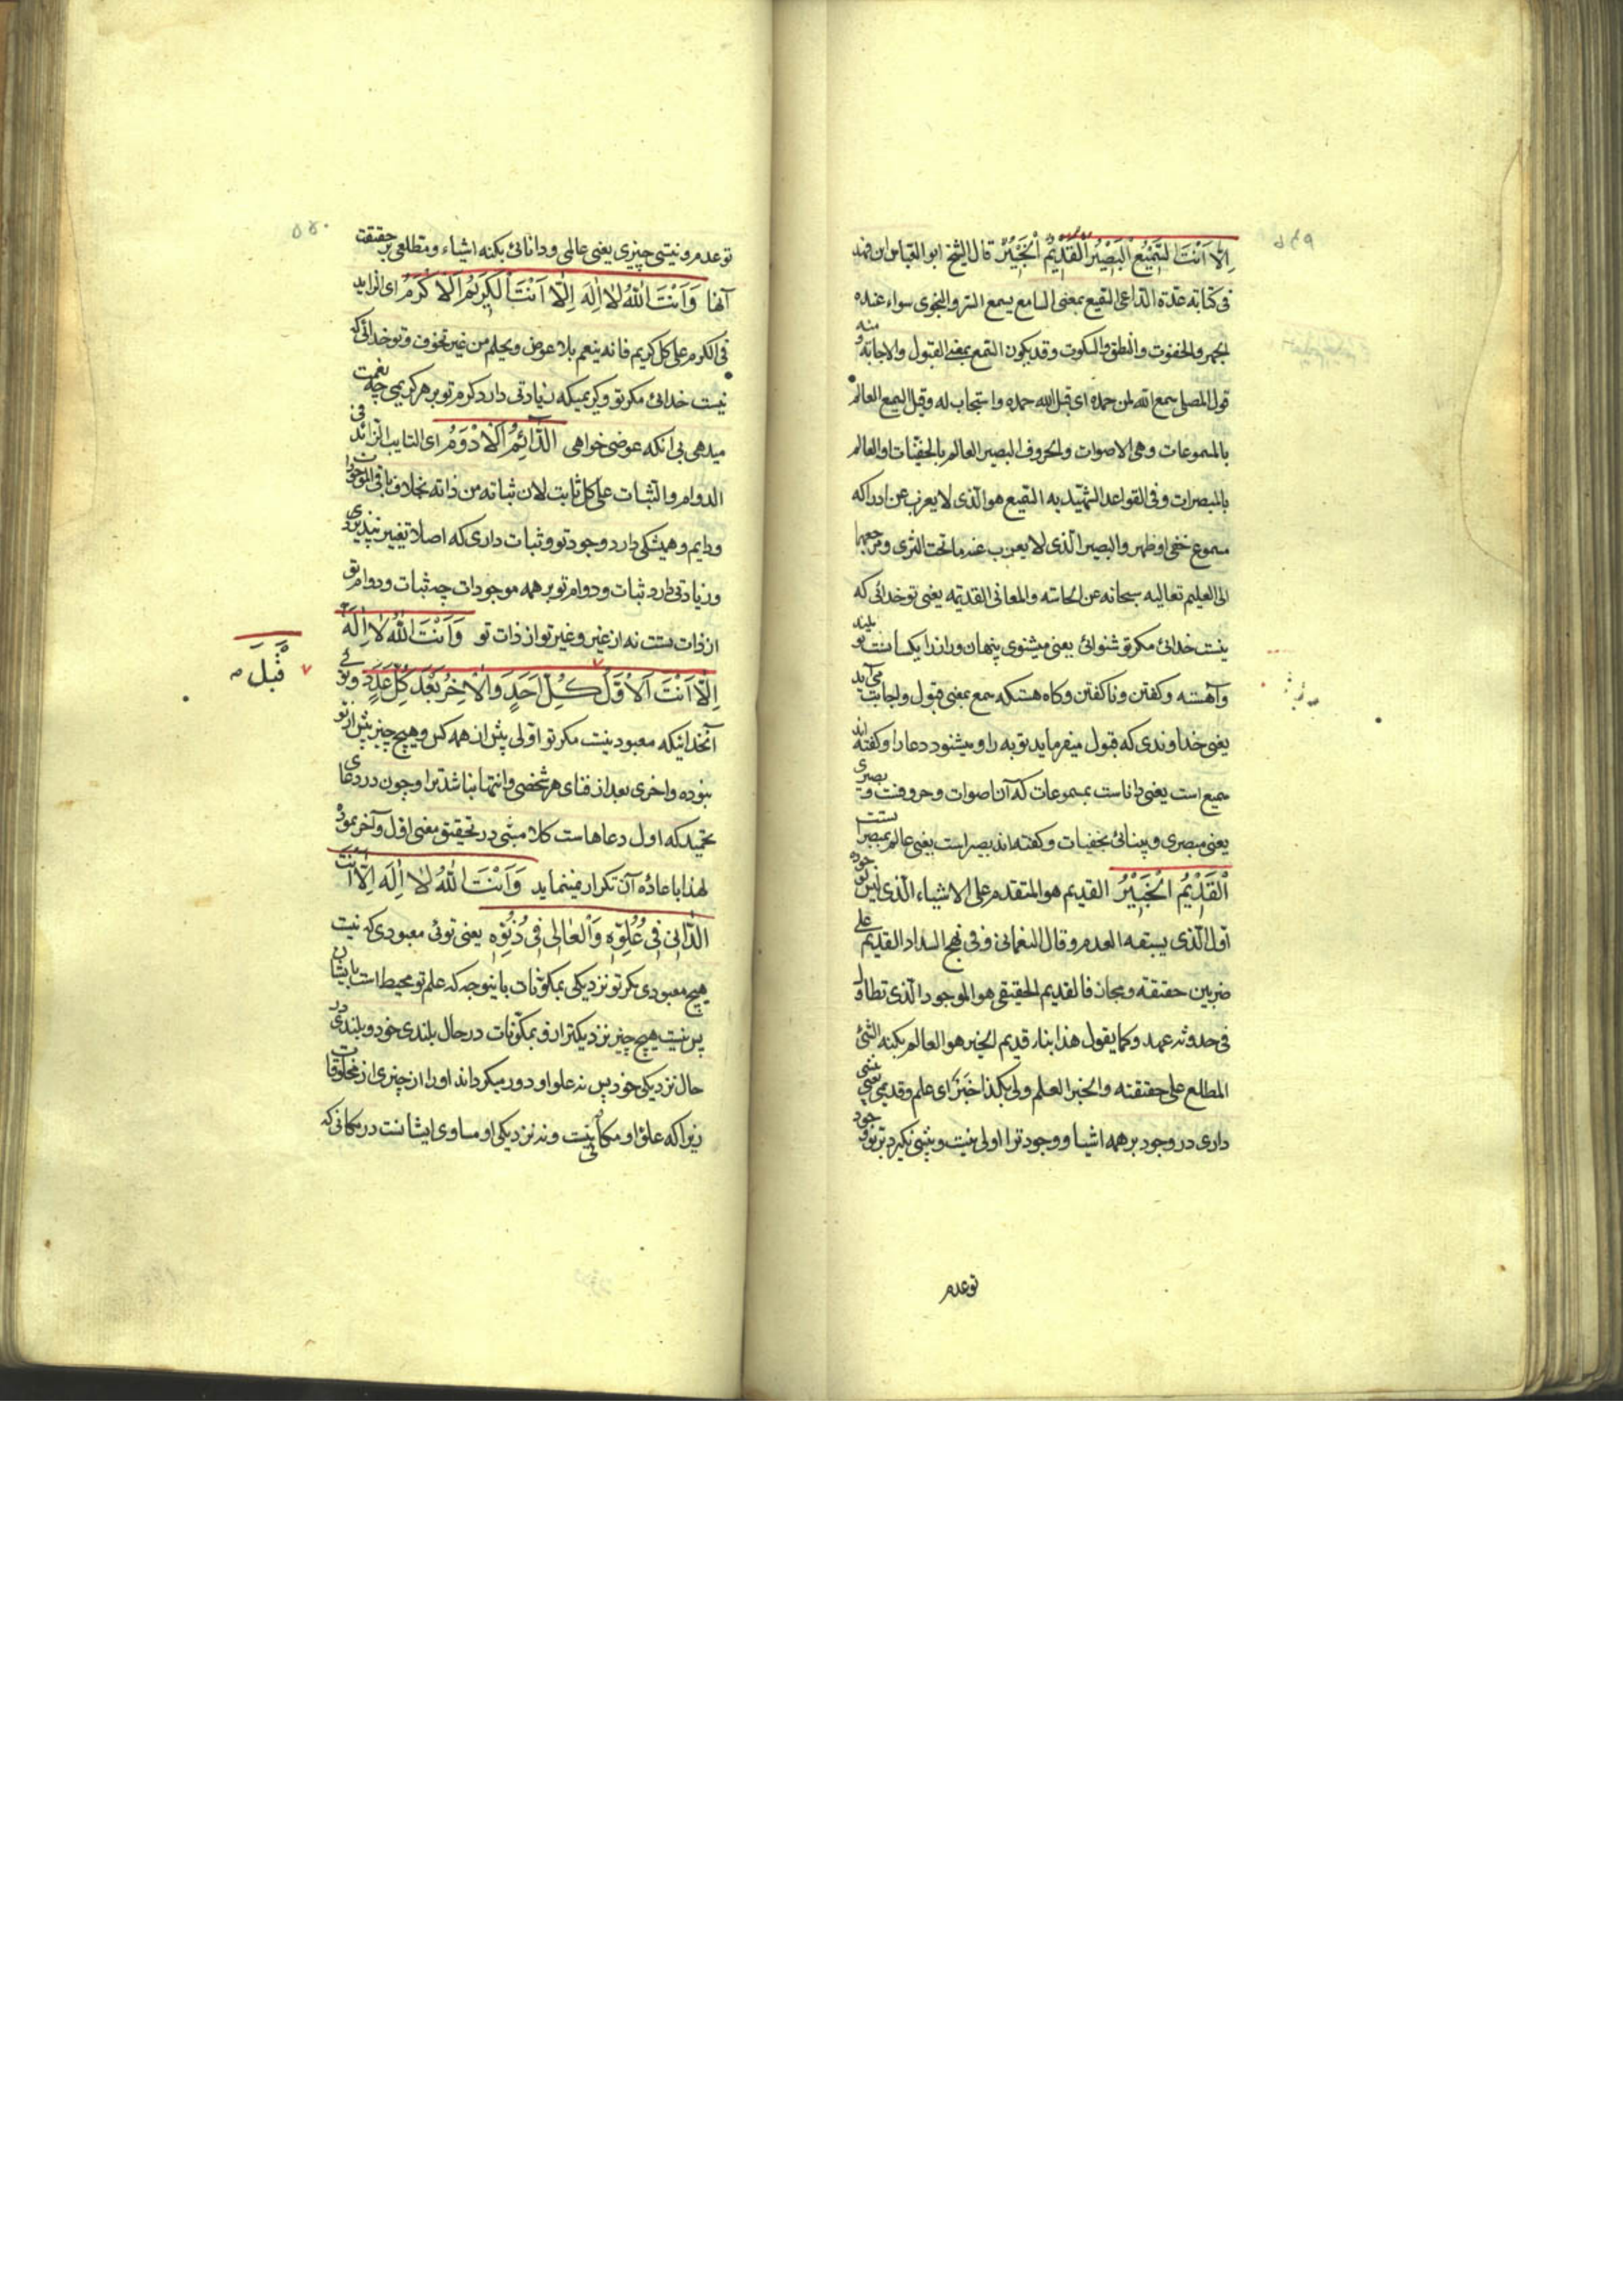 اِلّا اَنْتَ السَّمیْعُ الْبَصْیُر الْقَدْیمُ الْخَبیْرُ قال الشیخ ابو العباس ابن فهد
فی کتابه عدة الداعی السمیع بمعنی السامع یسمع السر والنجوی سواء عنده
الجهر والخفوت والنطق والسکوت وقد یکون السمع بمعنی القبول والاجابة ومنه
قول المصلی سمع الله لمن حمده ای قبل الله حمده واستجاب له وقیل السمیع العالم
بالمسموعات وهی الاصوات والحروف البصیر العالم بالخفیّات والعالم
بالمبصرات وفی القواعد الشهیدیه السمیع هو الّذی لا یعزب عن ادراکه
مسموع خفی او ظهر والبصیر الّذی لا یعزب عنه ما تحت الثری ومرجعهما
الی العلیم تعالیه سبحانه عن الحاسّه والمعانی القدیمه یعنی تو خدائی که
نیست خدائی مکر تو شنوائی یعنی میشنوی پنهان وراز را یکسانست بتو بلند
وآهسته وکفتن وناکفتن وکاه هستکه سمع بمعنی قبول واجابت می آید
یعنی خداوندی که قبول میفرماید توبه را و میشنود دعا را وکفته اند
سمیع است یعنی داناست بمسموعات که آن اصوات وحروفست و بصیری
یعنی مبصری و بینائی بخفیات وکفته اند بصیر است یعنی عالم بمبصرا تست
اَلْقَدْیُم الْخَبَیْرُ القدیم هو المتقدم علی الاشیاء الّذی لیس لوجوده
اول الّذی یسبقه العدم وقال النعمانی وفی نهج السداد القدیم علی
ضربین حقیقه ومجاز فالقدیم الحقیقی هو الموجود الّذی تطاول
فی حدوثه عهد وکما یقول هذا بناء قدیم الخبیر هو العالم بکنه الشئ
المطلع علی حقیقته والخبر العلم ولی بکذا خَبَرٌ ای علم وقدیمی یعنی
داری در وجود بر همه اشیا ووجود ترا اولی نیست و پیشی نکیرد بر وجود
تو عدم
تو عدم ونیستی چیزی یعنی عالمی ودانائی بکنه اشیاء ومطلعی بر حقیقت
آنها وَاَنْتَ اللّهُ لا اِلَهَ اِلّا اَنْتَ الْکَریُم اَلاَ کْرَمُ ای الزاید
فی الکرم علی کل کریم فانه ینعم بلا عوض ویحلم من غیر تخوف وتو خدائی که
نیست خدائی مکر تو وکریمیکه زیادتی دارد کرم تو بر هر کریمی چه نعمت
میدهی بی انکه عوضی خواهی الدّائِمُ اَلاَدْوَمُ ای الثابت الزائد فی
الدوام والثبات علی کل ثابت لان ثباته من ذاته بخلاف باقی الموجودات
ودایم وهمیشکی دارد وجود تو وثبات داری که اصلا تغییر نپذیری
وزیادتی دارد ثبات ودوام تو بر همه موجودات چه ثبات ودوام تو
از ذات تست نه از غیر وغیر تو از ذات تو وَاَنْتَ اللّهُ لا اِلَهَ
اِلّا اَنْتَ اَلاَوَّلُ کُلِّ اَحَدٍ وَالاْخِرُ بَعْدَ کُلِّ عَدَدٍ وتوئی
قَبْلَ
آنخدائیکه معبود نیست مکر تو اوّلی پیش از همه کس وهیچ چیز پیش از تو
نبوده واخری بعد از فنای هر شخصی وانتها نباشد ترا وچون در دعای
تحمید که اول دعاهاست کلا مشبی در تحقیق معنی اوّل وآخر نمود
لهذا باعاده آن تکرار نمینماید وَاَنْتَ اللّهُ لا اِلَهَ اِلّا اَنْتَ
الدّانی فی عُلُوِّهِ وَالْعالی فی دُنُوِّهِ یعنی توئی معبودی که نیست
هیچ معبودی مکر تو نزدیکی بمکوّنات باینوجه که علم تو محیط است بایشان
پس نیست هیچ چیز نزدیکتر از و بمکوّنات در حال بلندی خود و بلندی در
حال نزدیکی خود پس نه علو او دور میکرداند او را از چیزی از مخلوقات
زیرا که علوّ او مکانی نیست ونه نزدیکی او مساوی ایشانست در مکانی که